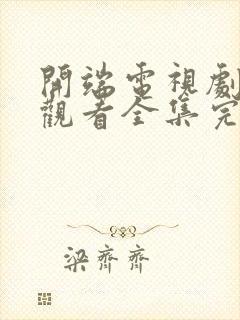 開端電視劇
觀看全集完
梁齊齊